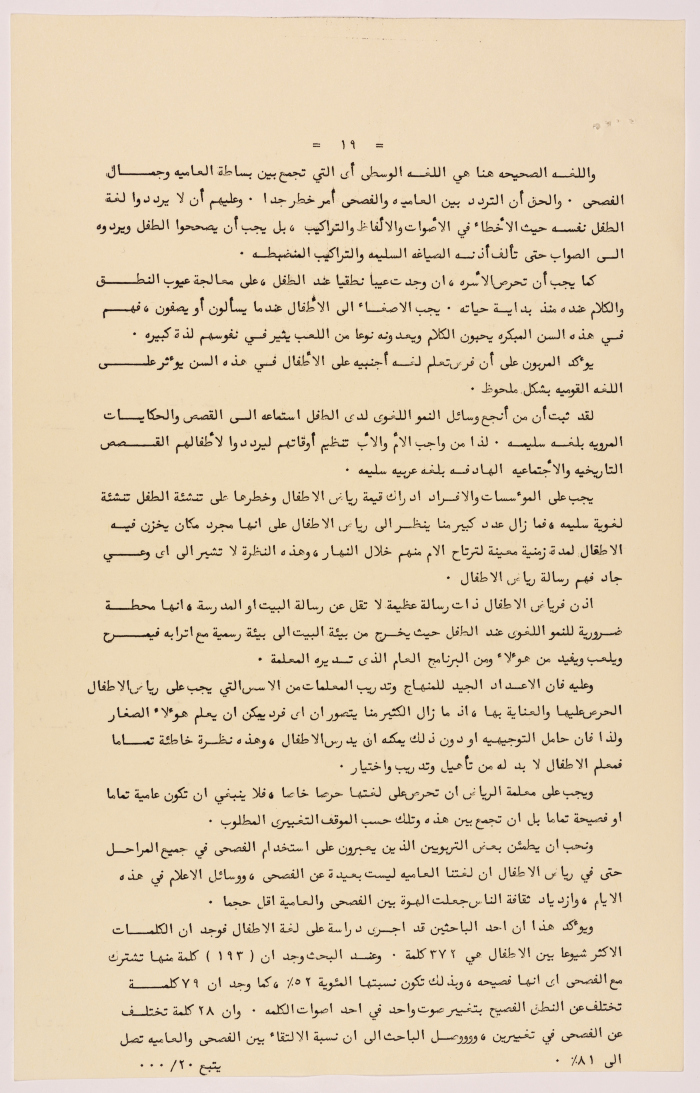 = ١٩ =
واللغـــه الصحيحه هنا هي اللغـه الوسطى أى التي تجمع بين بساطة العاميه وجمـــــال
الفصحى ٠ والحق أن التردد بين العاميه والفصحى أمر خطر جدا ٠ وعليهم أن لا يرددوا لغة
الطفل نفسـه حيث الأخطاء في الأصوات والألفاظ والتراكيب ، بل يجب أن يصححوا الطفل ويردوه
الـى الصواب حتى تألف أذنـه الصياغه السليمه والتراكيب المنضبطـه ٠
كما يجب أن تحرص الأسره ، ان وجدت عيبا نطقيا عند الطفل ، على معالجة عيوب النطـــق
والكلام عنده منذ بدايـة حياته ٠ يجب الاصغـاء الى الأطفال عندما يسألون أو يصفون ، فهــم
فـي هذه السن المبكره يحبون الكلام ويعدونه نوعا من اللعب يثير فـي نفوسهم لذة كبيره ٠
يؤكد المربون على أن فرض تعلم لغـه أجنبيه على الأطفال فـي هذه السن يؤثر علـــى
اللغه القوميه بشكل ملحوظ ٠
لقد ثبت أن من أنجع وسائل النمو اللغوى لدى الطفل استماعه الـى القصص والحكايــات
المرويه بلغـه سليمـه ٠ لذا من واجب الأم والأب تنظيم أوقاتهم ليرددوا لأطفالهم القــصص
التاريخيه والأجتماعيه الهادفـه بلغه عربيه سليمه ٠
يجب على المؤسسات والافراد ادراك قيمة رياض الاطفال وخطرها على تنشئة الطفل تنشئة
لغوية سليمه ، فما زال عدد كبير منا ينظر الى رياض الاطفال على انها مجرد مكان يخزن فيـه
الاطفال لمدة زمنية معينة لترتاح الام منهم خلال النهار ، وهذه النظرة لا تشير الى اى وعـــي
جاد فهم رسالة رياض الاطفال ٠
اذن فرياض الاطفال ذات رسالة عظيمة لا تقل عن رسالة البيت او المدرسة ، انها محطـــة
ضرورية للنمو اللغوى عند الطفل حيث يخرج من بيئة البيت الى بيئة رسمية مع اترابه فيمـــرح
ويلعب ويفيد من هؤلاء ومن البرنامج العام الذى تديره المعلمة ٠
وعليه فان الاعداد الجيد للمنهاج وتدريب المعلمات من الاسس التي يجب على رياض الاطفال
الحرص عليها والعناية بها ، اذ ما زال الكثير منا يتصور ان اى فرد يمكن ان يعلم هؤلاء الصغار
ولذا فان حامل التوجيهيه او دون ذلك يمكنه ان يدرس الاطفال ، وهذه نظرة خاطئة تمـــاما
فمعلم الاطفال لا بد له من تأهيل وتدريب واختيار ٠
ويجب على معلمة الرياض ان تحرص على لغتها حرصا خاصا ، فلا ينبغي ان تكون عامية تماما
او فصيحة تماما بل ان تجمع بين هذه وتلك حسب الموقف التعبيرى المطلوب ٠
ونحب ان يطمئن بعض التربويين الذين يعبرون على استخدام الفصحى في جميع المراحـل
حتى في رياض الاطفال ان لغتنا العاميه ليست بعيدة عن الفصحى ، ووسائل الاعلام في هذه
الايام ، وازدياد ثقافة الناس جعلت الهوة بين الفصحى والعامية اقل حجما ٠
ويؤكد هذا ان احد الباحثين قد اجرى دراسة على لغة الاطفال فوجد ان الكلمـــات
الاكثر شيوعا بين الاطفال هي ٣٧٢ كلمة ٠ وعنـد البحث وجد ان ( ١٩٣ ) كلمة منها تشترك
مع الفصحى اى انها فصيحه ، وبذلك تكون نسبتها المئوية ٥٢٪ ، كما وجد ان ٧٩ كلمـــة
تختلف عن النطق الفصيح بتغيير صوت واحد في احد اصوات الكلمه ٠ وان ٢٨ كلمة تختلـف
عن الفصحى في تغييرين ، وووصل الباحث الى ان نسبة الالتقاء بين الفصحى والعاميه تصل
الى ٨١٪ ٠ يتبع ٢٠/ ٠٠٠